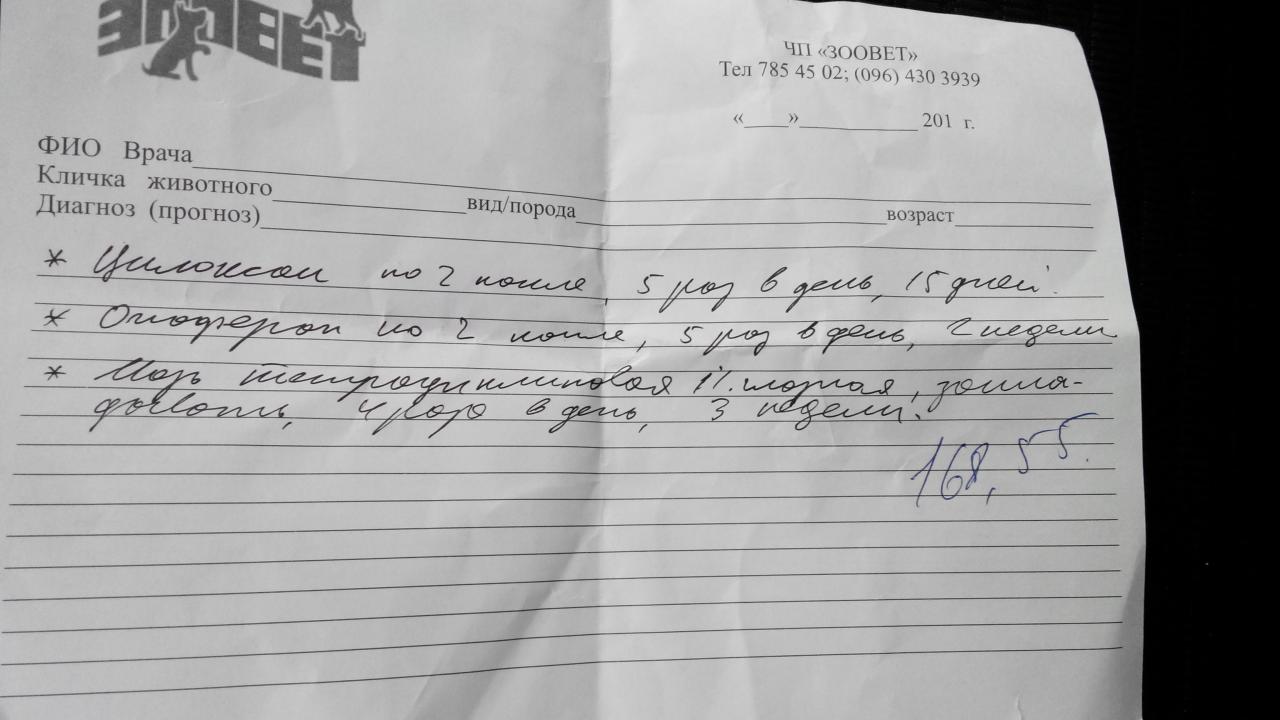 ЗООВЕТ
ЧП «ЗООВЕТ»
Тел 785 45 02; (096) 430 3939
«____»___________ 201 г.
ФИО Врача
Кличка животного вид/порода возраст
Диагноз (прогноз)
* Цилоксан по 2 капле, 5 раз в день, 15 дней.
* Окоферон по 2 капле, 5 раз в день, 2 недели
* Мазь тетрациклиновая 1% глазная, закла-
дывать, 4 раза в день, 3 недели.
168,55.